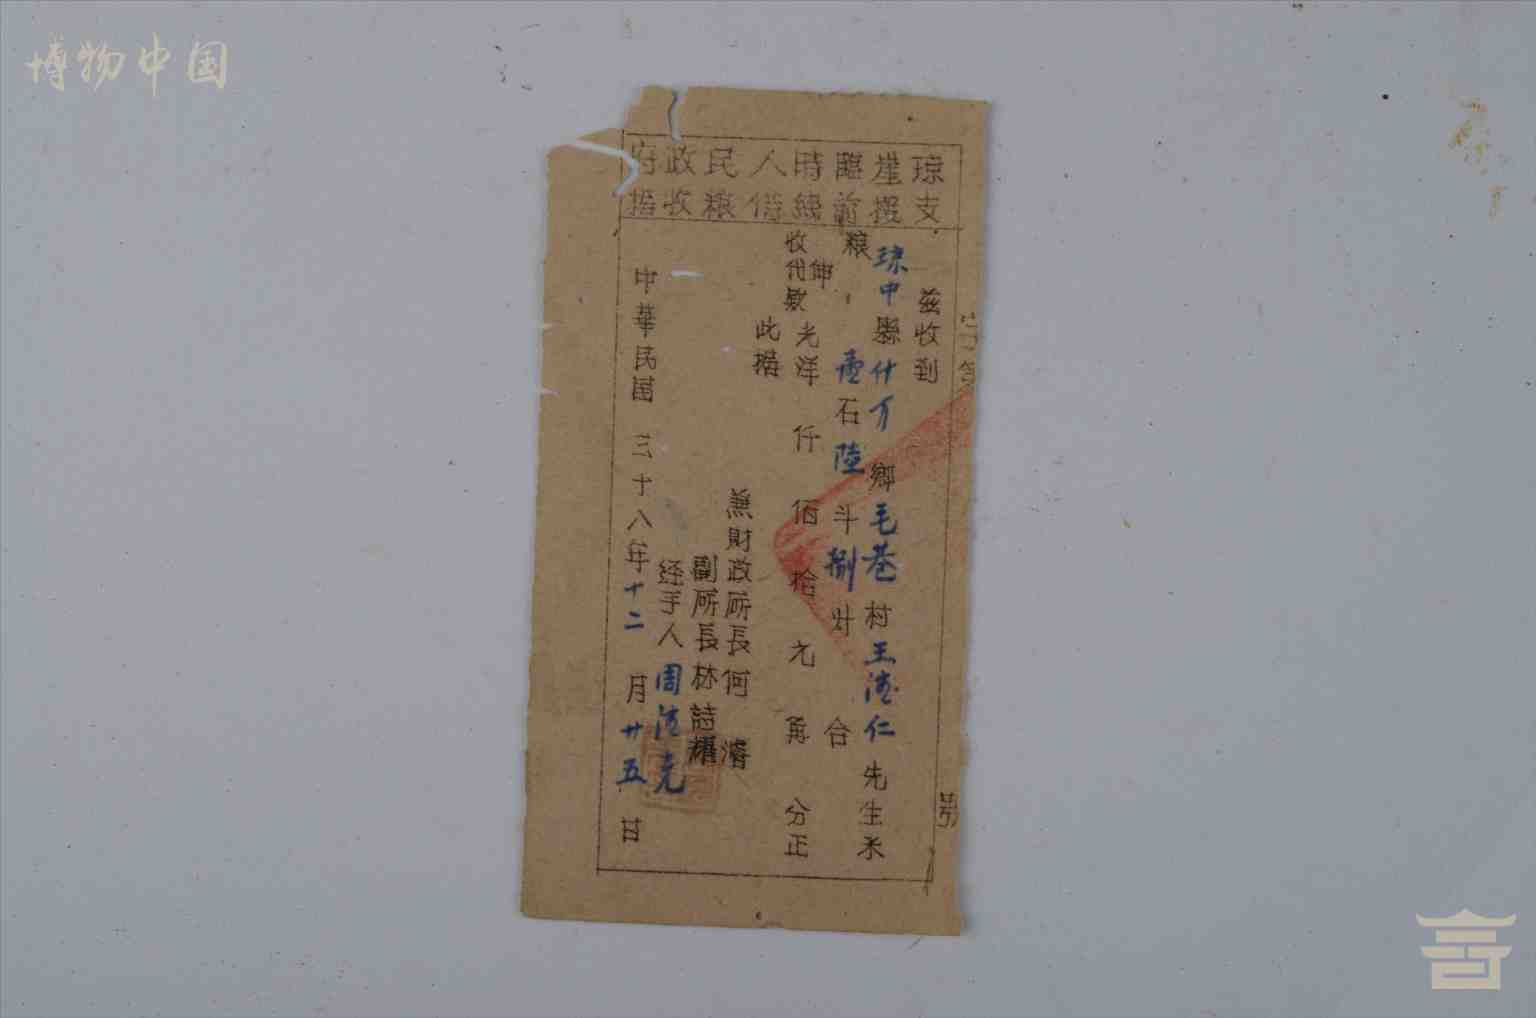 博物中国
琼崖臨時人民政府
支援前綫借粮收據
字第 號
兹收到
琼中縣什万鄉毛巷村王德仁先生米
粮 壹石陸斗捌升 合
伸收代款光洋 仟 佰 拾 元 角 分正
此據
兼財政所長何濬
副所長林詩耀
经手人周德克
中華民国三十八年十二月廿五日